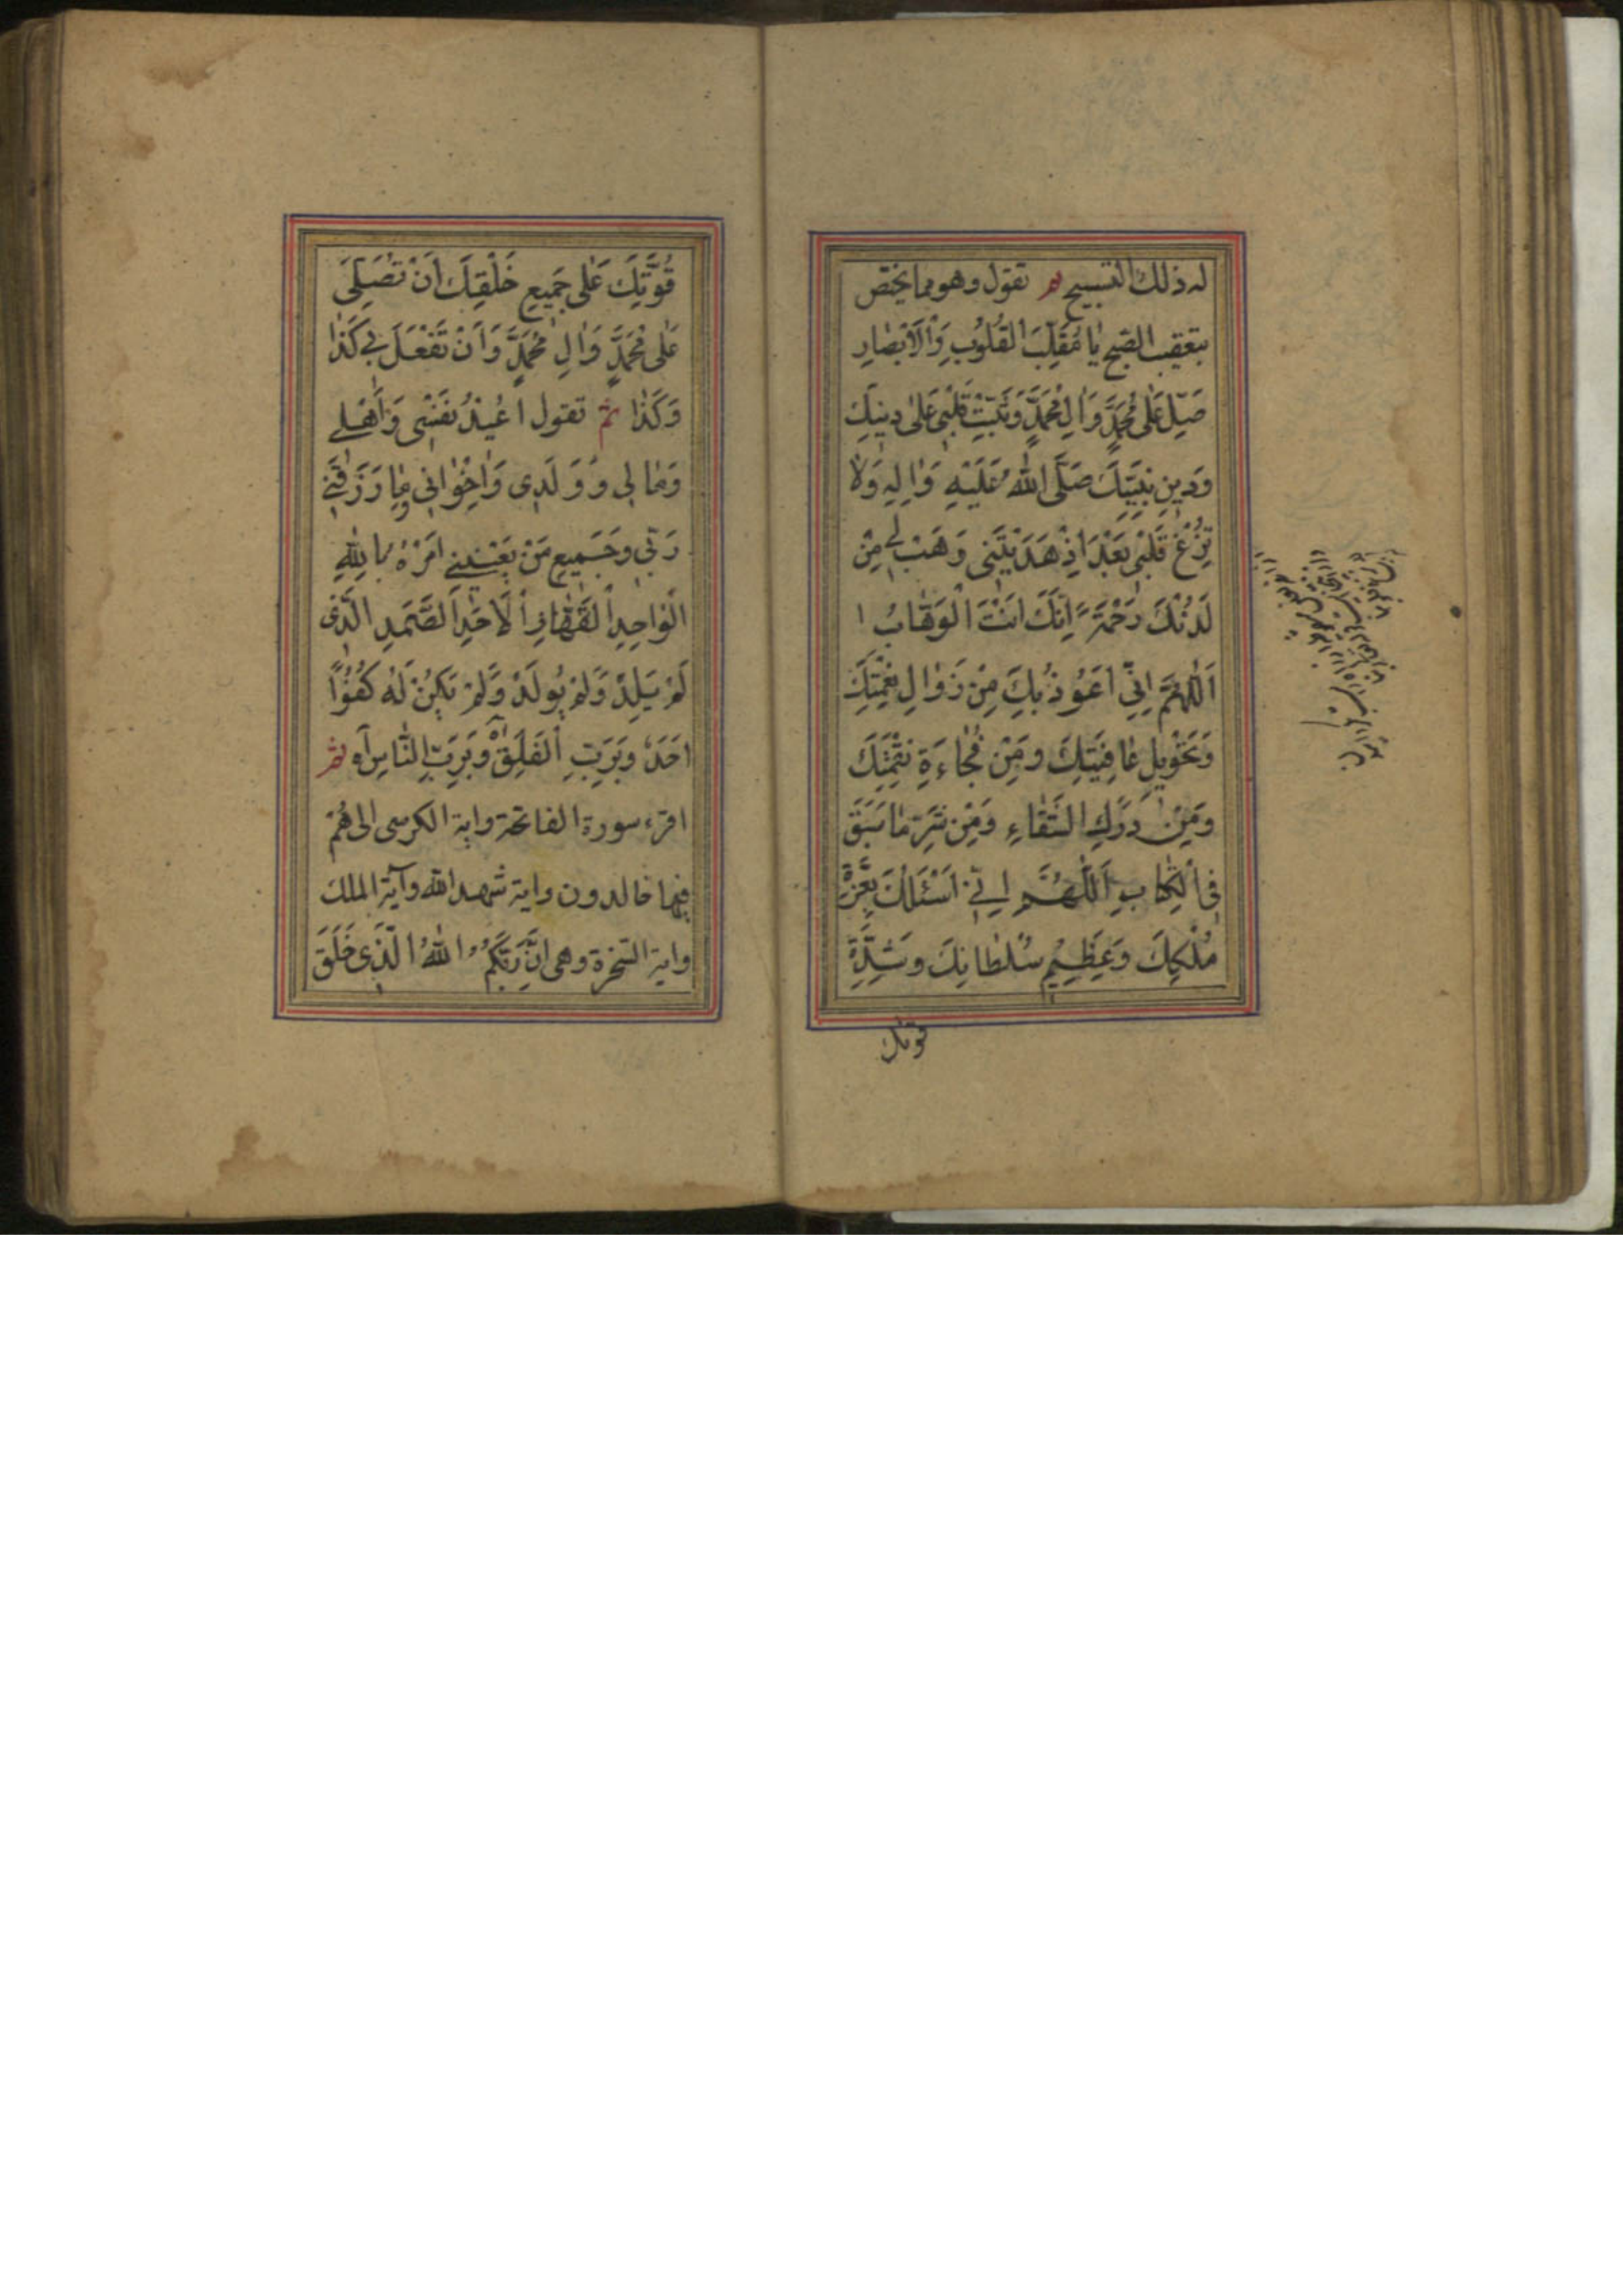 له ذلك التسبيح ثم تقول وهو مما يختص
بتعقيب الصبح يٰا مُقَلِّبَ الْقُلُوبِ وَالْاَبْصٰارِ
صَلِّ عَلٰى مُحَمَّدٍ وَاٰلِ مُحَمَّدٍ وَثَبِّتْ قَلْبِى عَلٰى دِينِكَ
وَدِينِ نَبِيِّكَ صَلَّى اللّٰهُ عَلَيْهِ وَاٰلِهِ وَلٰا
تُزِغْ قَلْبِى بَعْدَ اِذْ هَدَيْتَنِى وَهَبْ لِى مِنْ
لَدُنْكَ رَحْمَةً اِنَّكَ اَنْتَ الْوَهّٰابُ
اَللّٰهُمَّ اِنِّى اَعُوذُ بِكَ مِنْ زَوٰالِ نِعْمَتِكَ
وَتَحْوِيلِ عٰافِيَتِكَ وَمِنْ فُجٰاءَةِ نَقِمَتِكَ
وَمِنْ دَرَكِ الشَّقٰاءِ وَمِنْ شَرِّ مٰا سَبَقَ
فِى الْكِتٰابِ اَللّٰهُمَّ اِنِّى اَسْئَلُكَ بِعِزَّةِ
مُلْكِكَ وَعَظِيمِ سُلْطٰانِكَ وَشِدَّةِ
قوتك
قُوَّتِكَ عَلٰى جَمِيعِ خَلْقِكَ اَنْ تُصَلِّىَ
عَلٰى مُحَمَّدٍ وَاٰلِ مُحَمَّدٍ وَاَنْ تَفْعَلَ بِى كَذٰا
وَكَذٰا ثم تقول اُعِيذُ نَفْسِى وَاَهْلِى
وَمٰالِى وَوَلَدِى وَاِخْوٰانِى وَمٰا رَزَقَنِى
رَبِّى وَجَمِيعِ مَنْ يَعْنِينِى اَمْرُهُ بِاللّٰهِ
الْوٰاحِدِ الْقَهّٰارِ الْاَحَدِ الصَّمَدِ الَّذِى
لَمْ يَلِدْ وَلَمْ يُولَدْ وَلَمْ يَكُنْ لَهُ كُفُوًا
اَحَدٌ وَبِرَبِّ الْفَلَقِ اه وَبِرَبِّ النّٰاسِ اه ثم
اقرء سورة الفاتحة واية الكرسى الى هُمْ
فيها خالدون واية شهد الله وآية الملك
واية السخرة وهى اِنَّ رَبَّكُمُ اللّٰهُ الَّذِى خَلَقَ